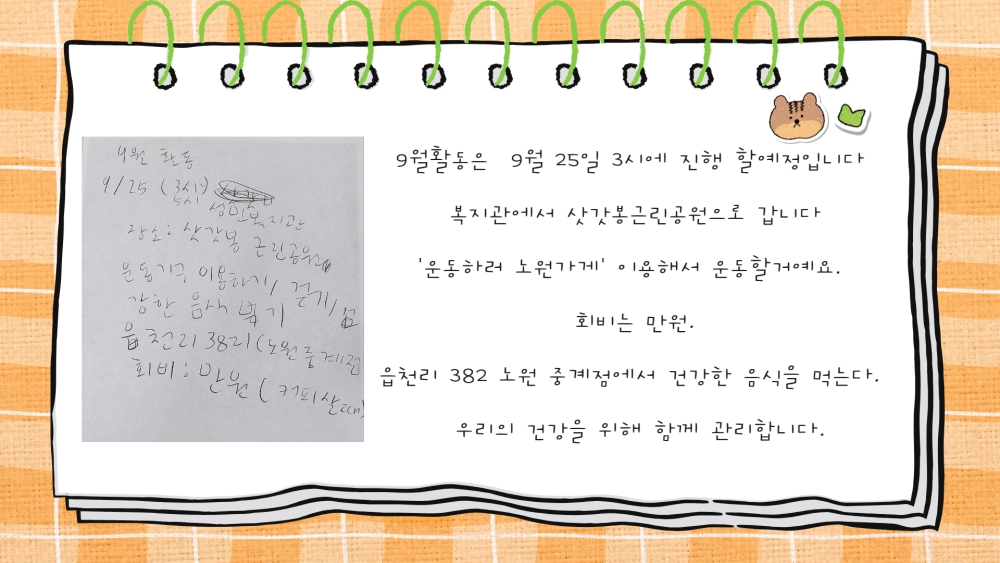 9월 활동
9/25 (3시)
5시
성민복지관
장소: 삿갓봉 근린공원
운동기구 이용하기, 걷기/
강한 음식 먹기
읍천리 382 (노원중계점
회비: 만원 (커피살때
9월활동은 9월 25일 3시에 진행 할예정입니다
복지관에서 삿갓봉근린공원으로 갑니다
'운동하러 노원가게' 이용해서 운동할거예요.
회비는 만원.
읍천리 382 노원 중계점에서 건강한 음식을 먹는다.
우리의 건강을 위해 함께 관리합니다.